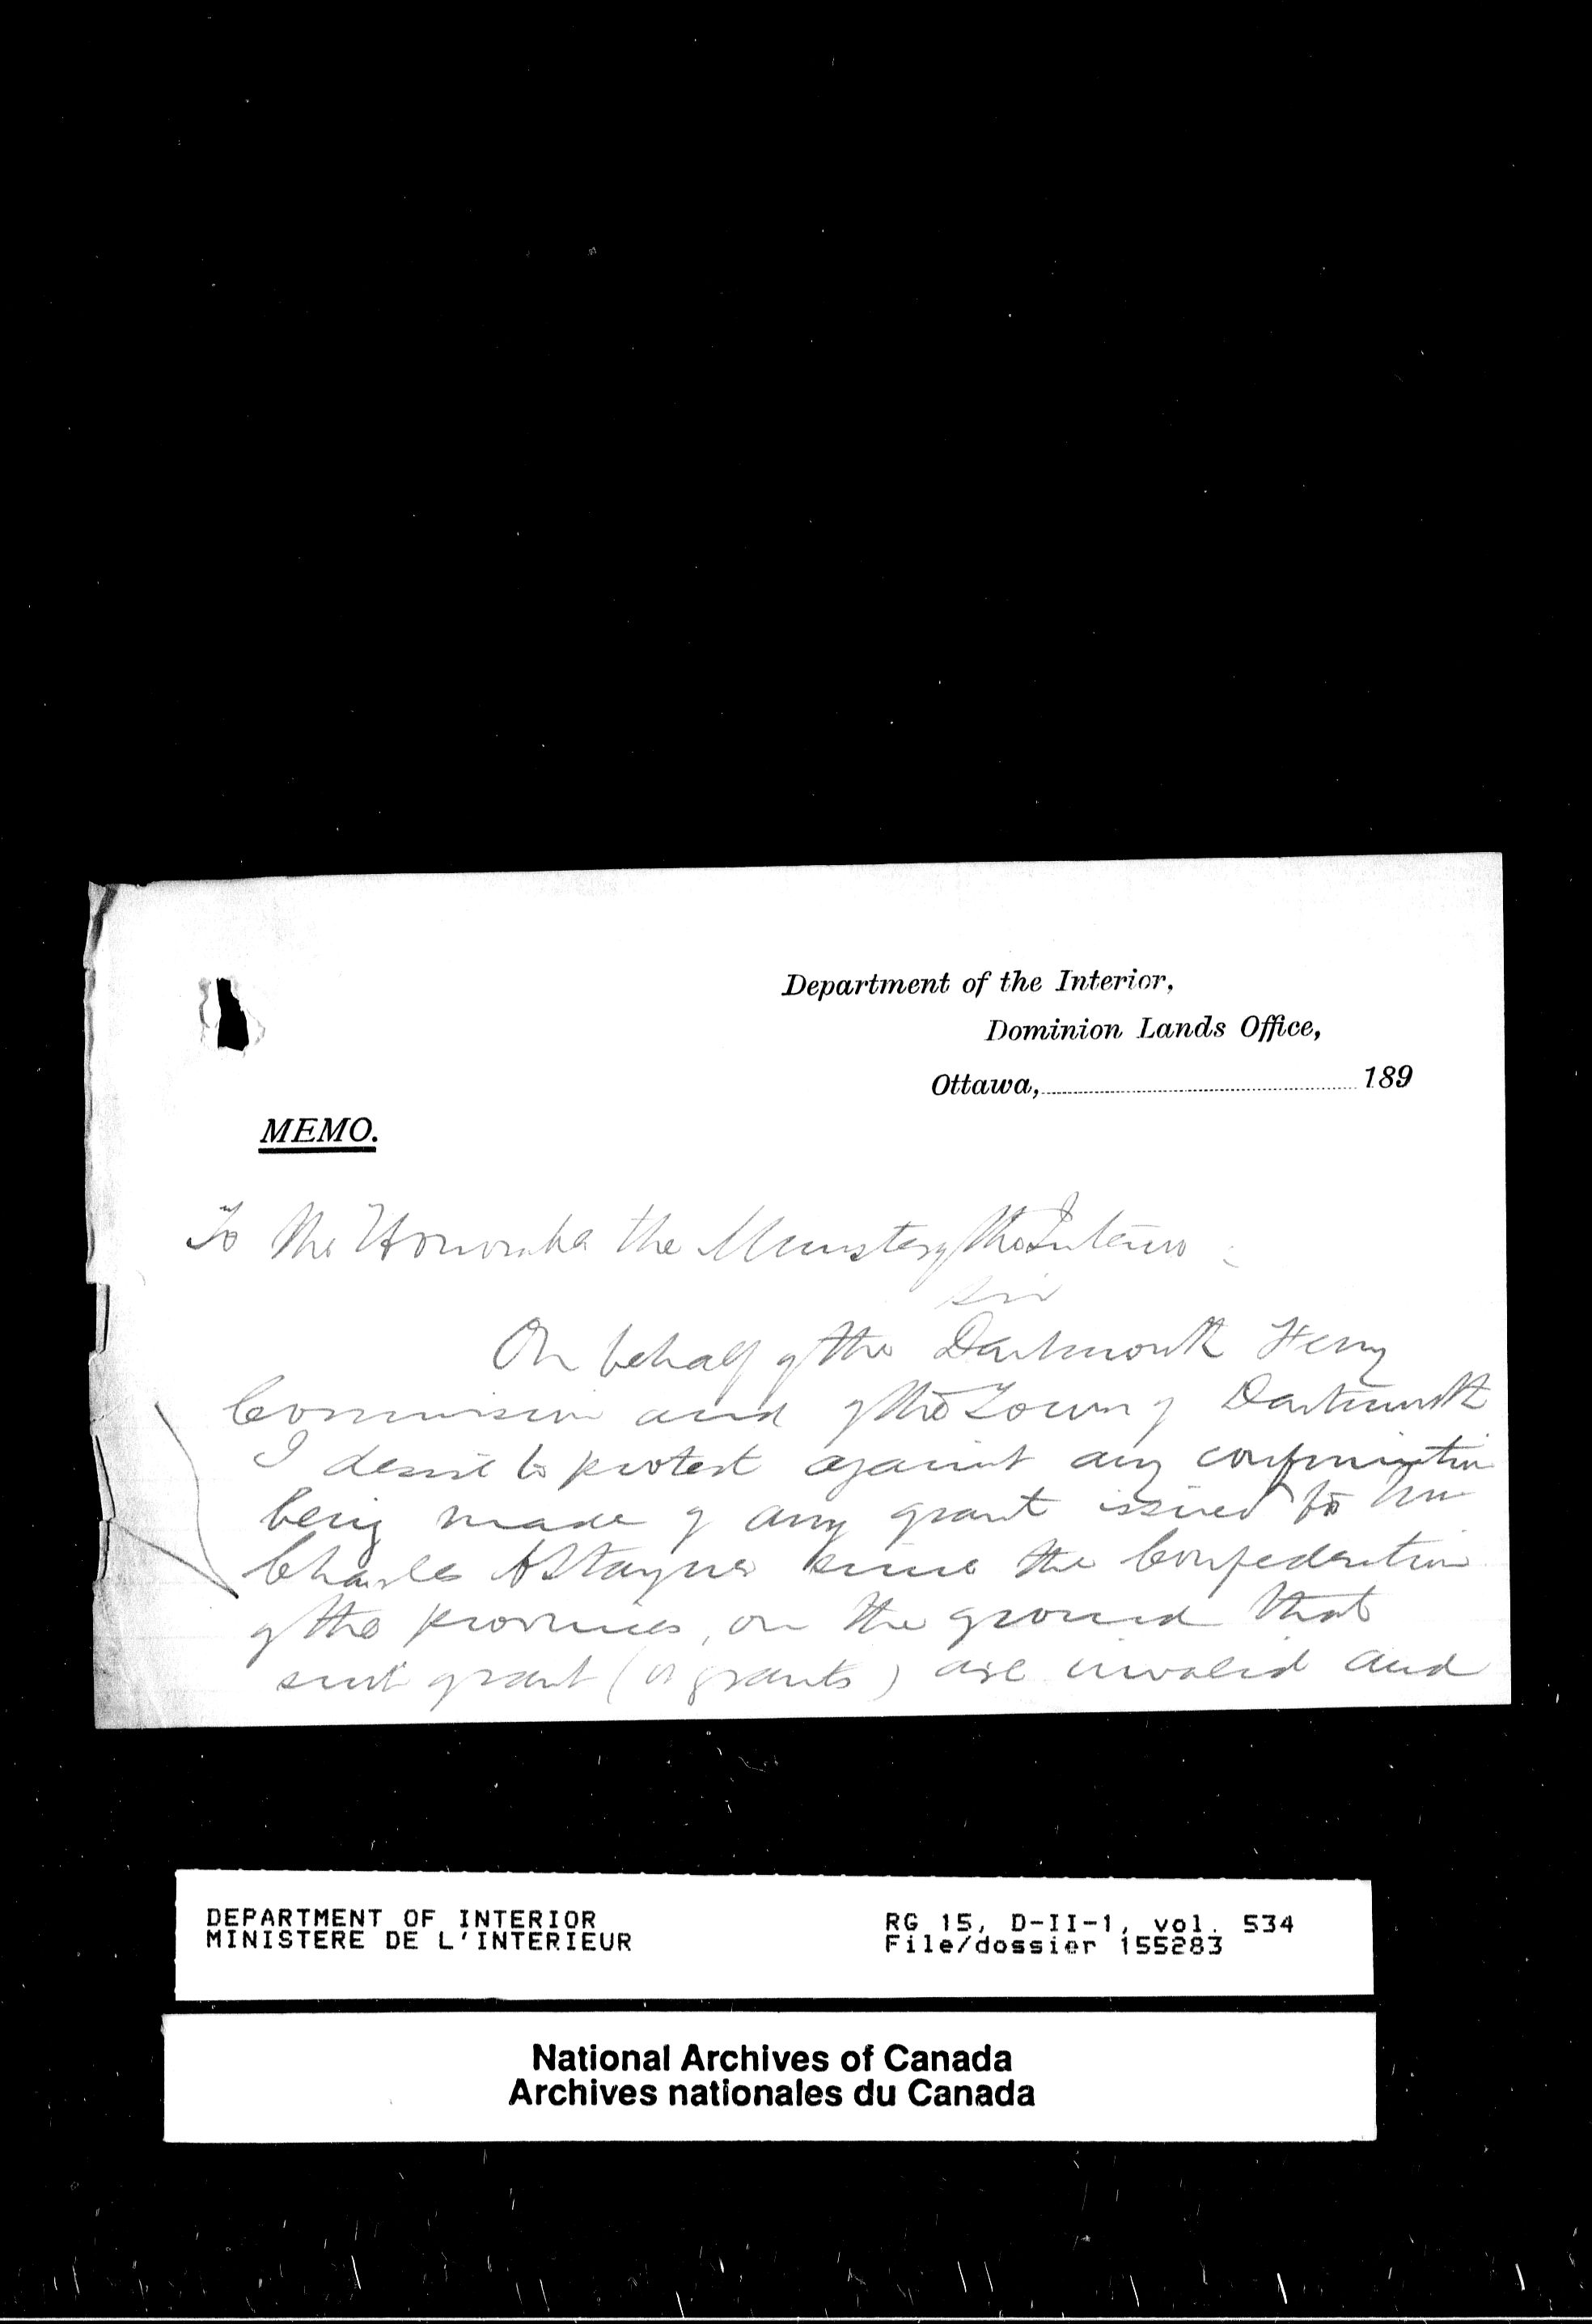 Department of the Interior,
Dominion Lands Office,
Ottawa, 189
MEMO.
To the Honorable the Minister of the Interior
Sir
On behalf of the Dartmouth Ferry
Commission and of the Town of Dartmouth
I desire to protest against any confirmation
being made of any grant issued to Mr
Charles A Stayner since the Confederation
of the provinces, on the ground that
such grant (or grants) are invalid and
DEPARTMENT OF INTERIOR
MINISTERE DE L'INTERIEUR
RG 15, D-II-1, vol. 534
File/dossier 155283
National Archives of Canada
Archives nationales du Canada